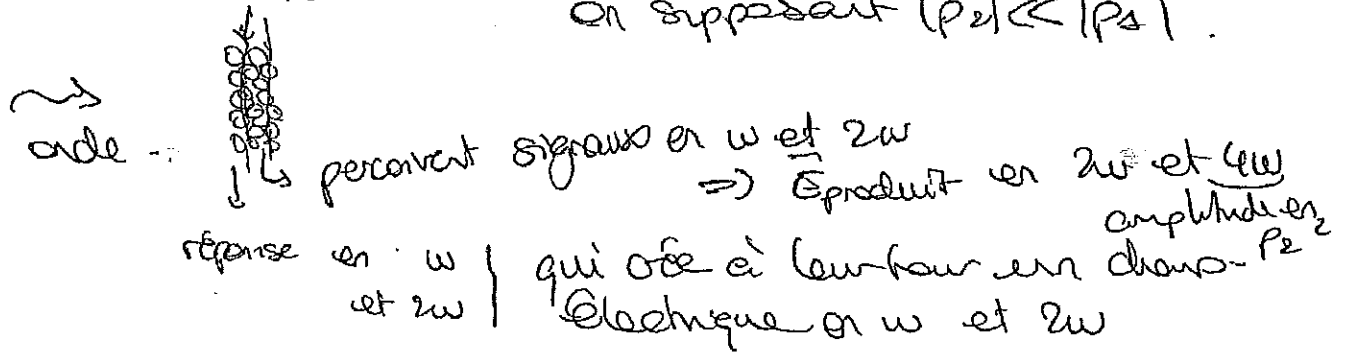 en supposant |p2| << |p1|.
onde
perçoivent signaux en ω et 2ω
=> E produit en 2ω et 4ω
amplitude en p2²
réponse en ω et 2ω
qui crée à leur tour un champ électrique en ω et 2ω